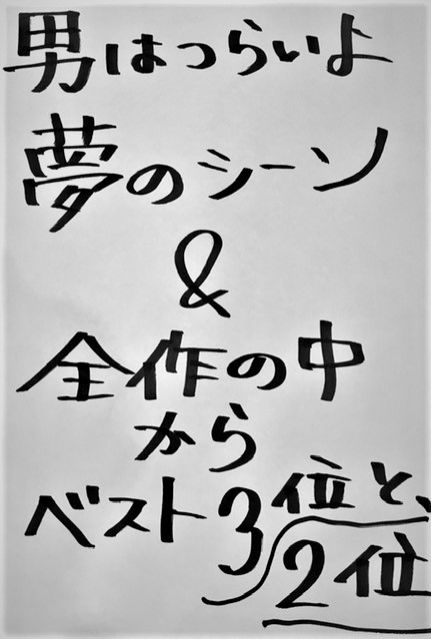 男はつらいよ
夢のシーン
&
全作の中
から
ベスト3位と、
2位